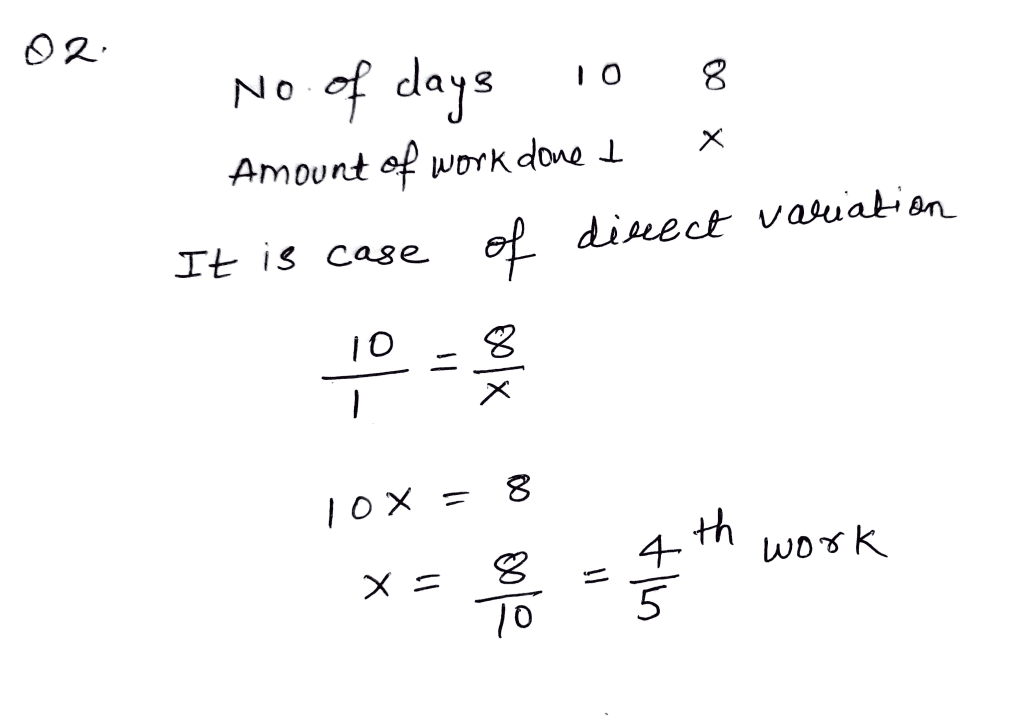 Q2.
No. of days 10 8
Amount of work done 1 x
It is case of direct variation
10/1 = 8/x
10x = 8
x = 8/10 = 4/5 th work